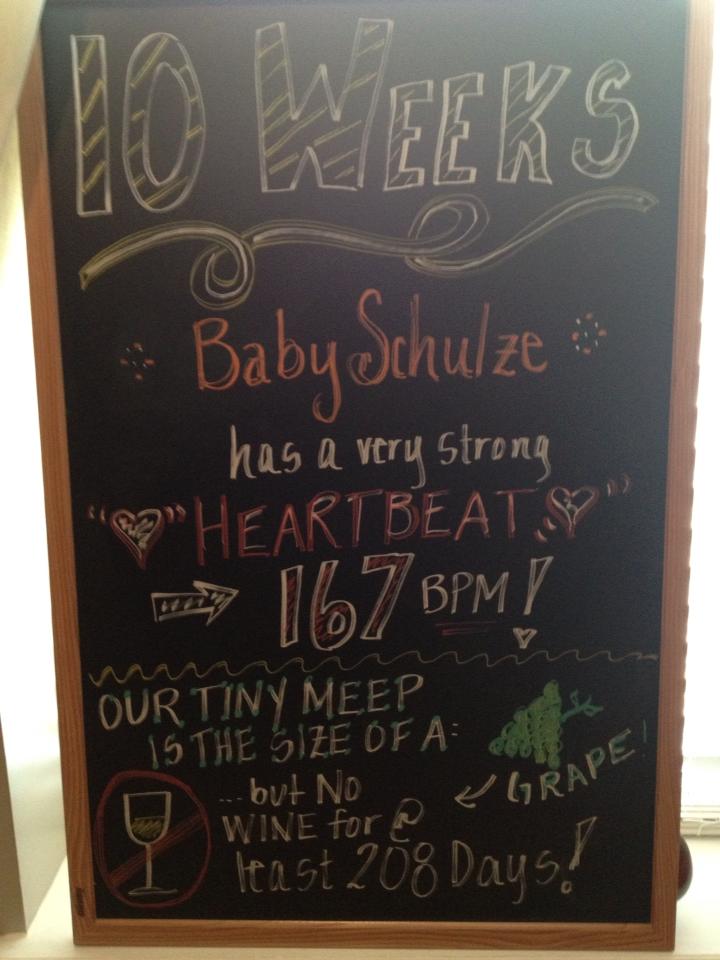 10 WEEKS
Baby Schulze
has a very strong
HEARTBEAT
167 BPM!
OUR TINY MEEP
IS THE SIZE OF A:
GRAPE!
...but No
WINE for @
least 208 Days!